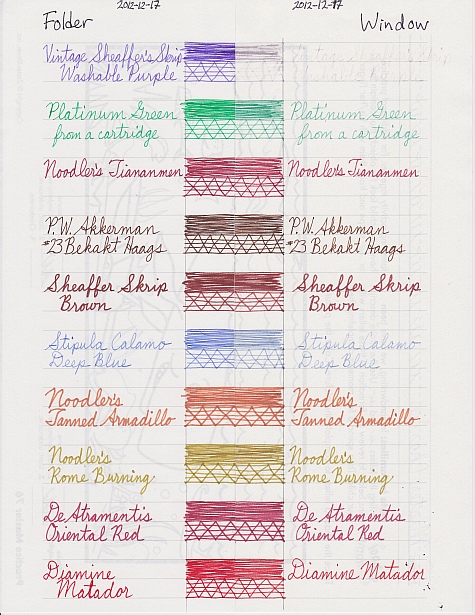 2012-12-17
2012-12-17
Folder
Window
Vintage Sheaffer's Skrip
Washable Purple
Platinum Green
from a cartridge
Platinum Green
from a cartridge
Noodler's Tiananmen
Noodler's Tiananmen
P.W. Akkerman
#23 Bekakt Haags
P.W. Akkerman
#23 Bekakt Haags
Sheaffer Skrip
Brown
Sheaffer Skrip
Brown
Stipula Calamo
Deep Blue
Stipula Calamo
Deep Blue
Noodler's
Tanned Armadillo
Noodler's
Tanned Armadillo
Noodler's
Rome Burning
Noodler's
Rome Burning
De Atramentis
Oriental Red
De Atramentis
Oriental Red
Diamine
Matador
Diamine Matador